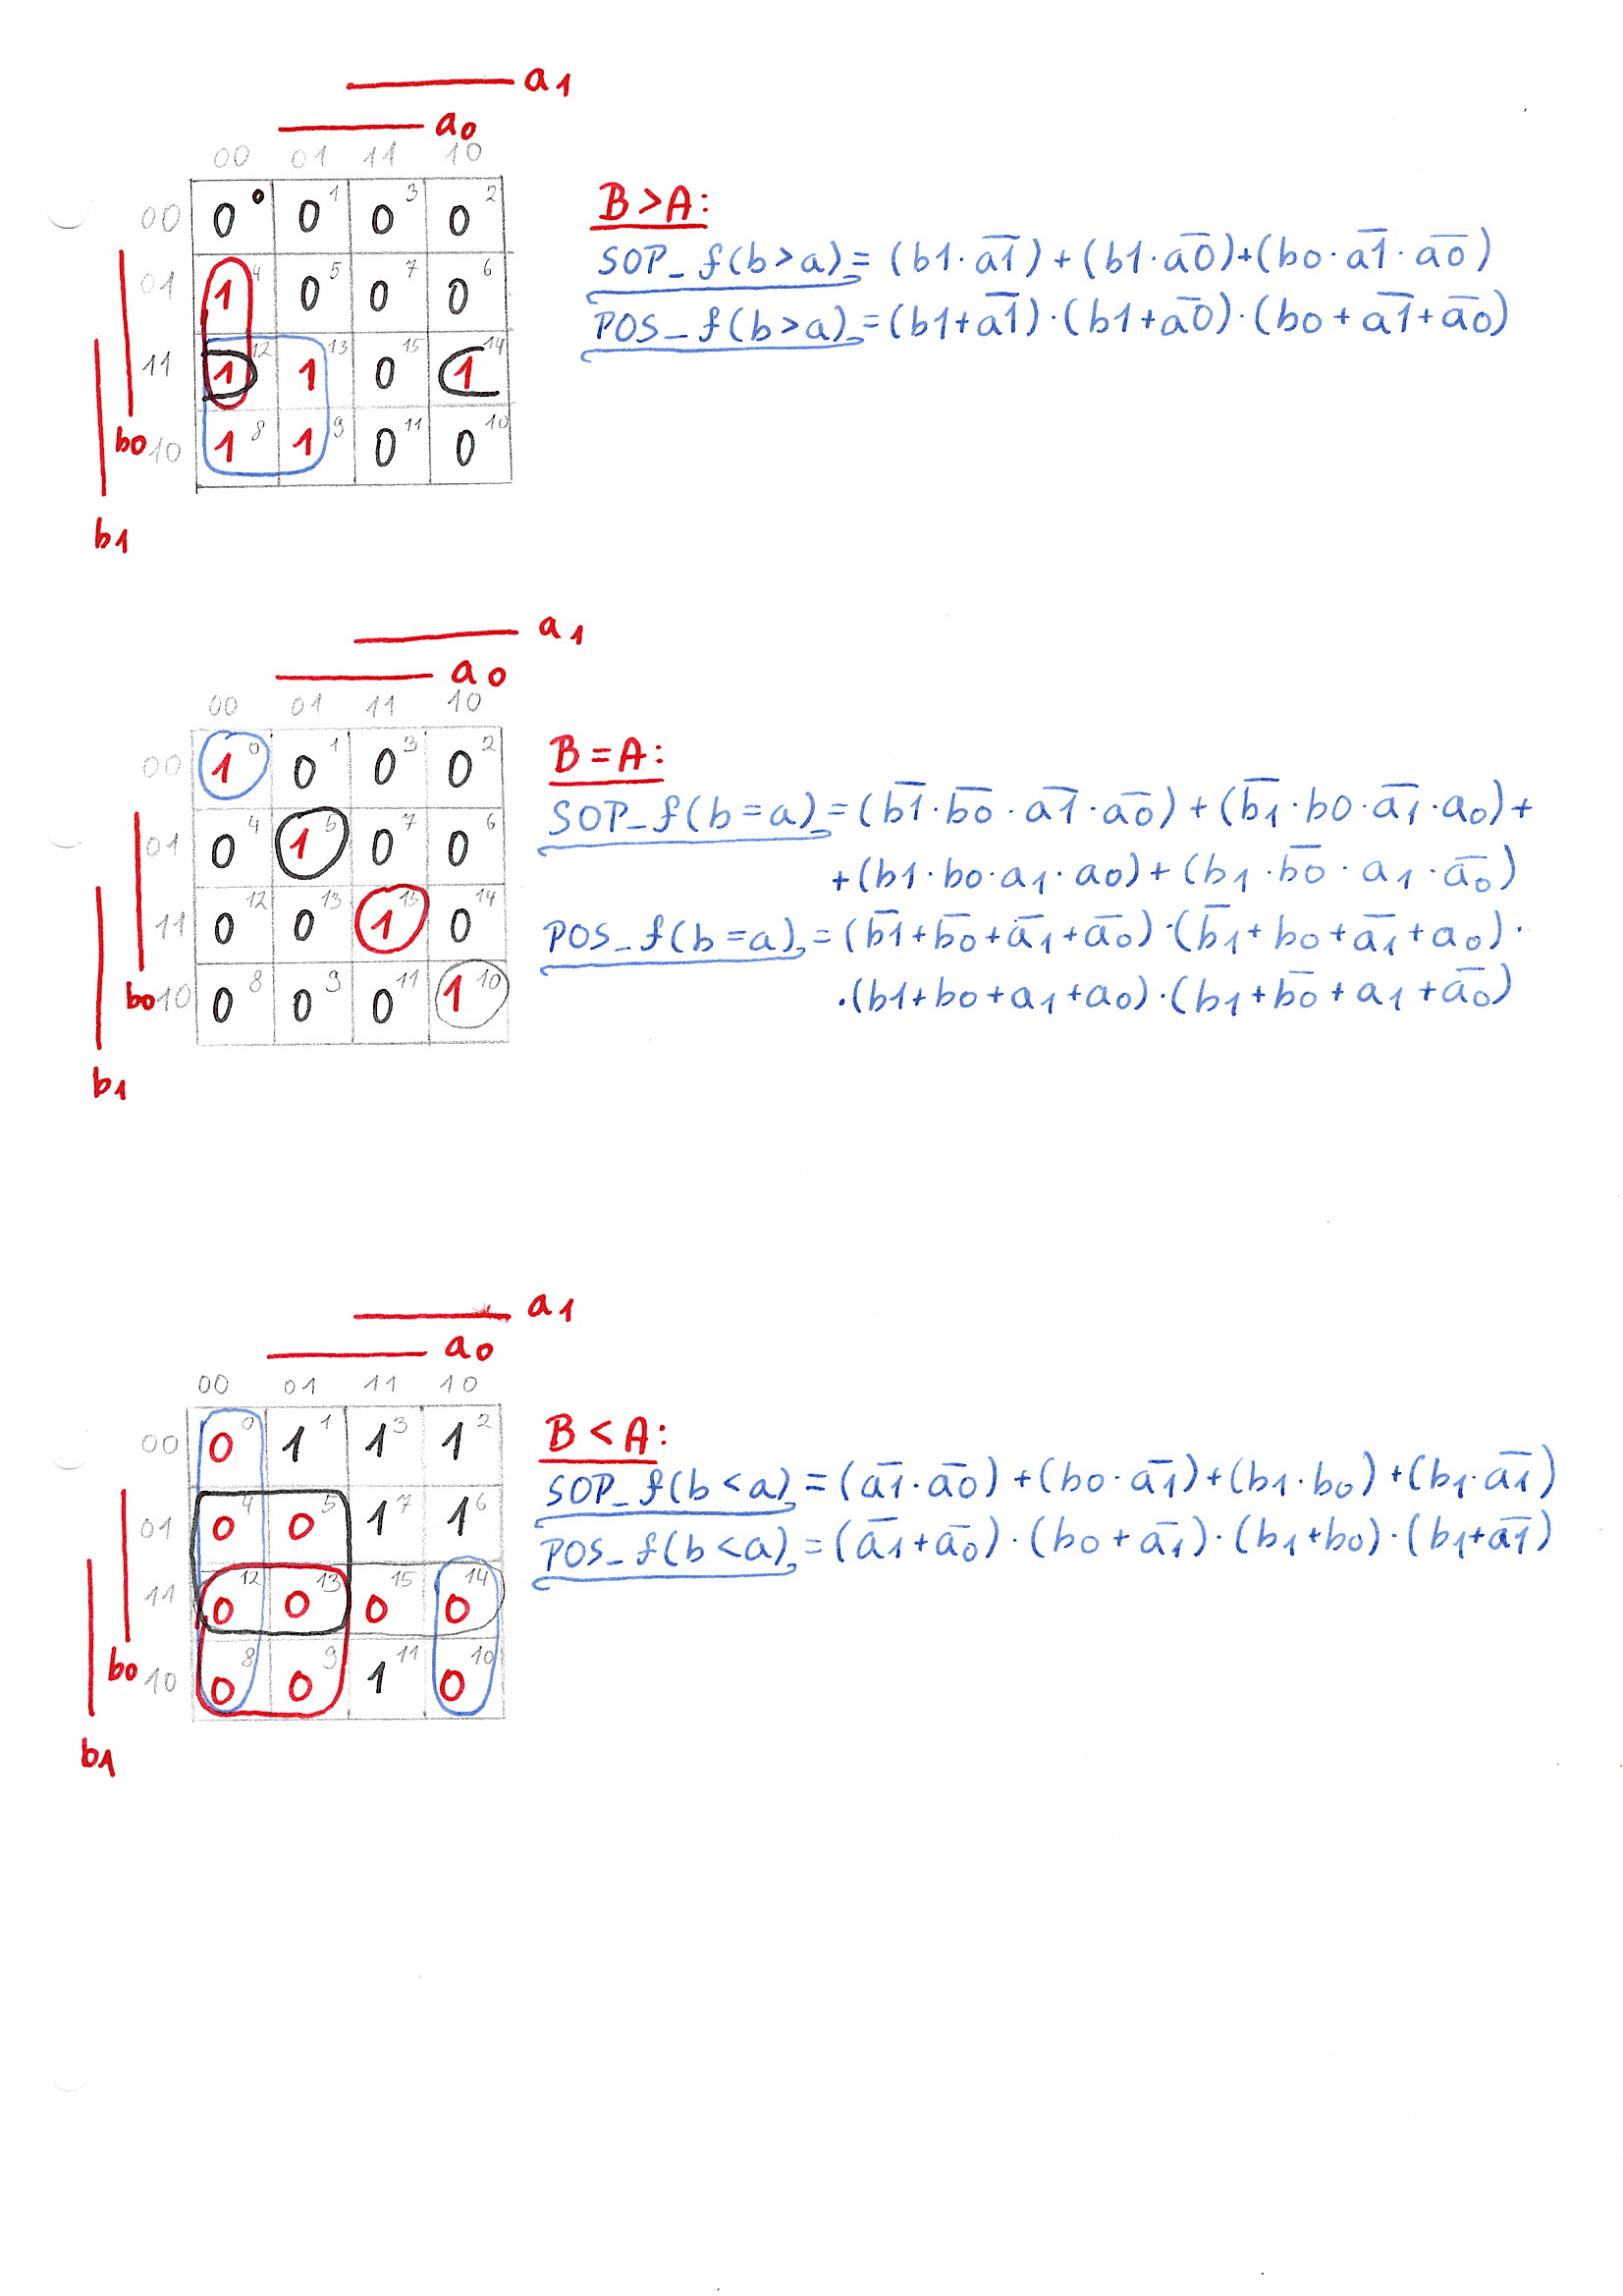 a1
a0
00 01 11 10
00 0 0 0 1 0 3 0 2
01 1 4 0 5 0 7 0 6
11 1 12 1 13 0 15 1 14
b0 10 1 8 1 9 0 11 0 10
b1
B>A:
SOP_f(b>a)= (b1·a̅1̅)+(b1·a̅0̅)+(b0·a̅1̅·a̅0̅)
POS_f(b>a)=(b1+a̅1̅)·(b1+a̅0̅)·(b0+a̅1̅+a̅0̅)
a1
a0
00 01 11 10
00 1 0 0 1 0 3 0 2
01 0 4 1 5 0 7 0 6
11 0 12 0 13 1 15 0 14
b0 10 0 8 0 9 0 11 1 10
b1
B=A:
SOP_f(b=a)=(b̅1̅·b̅0̅·a̅1̅·a̅0̅)+(b̅1̅·b0·a̅1̅·a0)+
+(b1·b0·a1·a0)+(b1·b̅0̅·a1·a̅0̅)
POS_f(b=a)=(b̅1̅+b̅0̅+a̅1̅+a̅0̅)·(b̅1̅+b0+a̅1̅+a0)·
·(b1+b0+a1+a0)·(b1+b̅0̅+a1+a̅0̅)
a1
a0
00 01 11 10
00 0 0 1 1 1 3 1 2
01 0 4 0 5 1 7 1 6
11 0 12 0 13 0 15 0 14
b0 10 0 8 0 9 1 11 0 10
b1
B<A:
SOP_f(b<a)=(a̅1̅·a̅0̅)+(b0·a̅1̅)+(b1·b0)+(b1·a̅1̅)
POS_f(b<a)=(a̅1̅+a̅0̅)·(b0+a̅1̅)·(b1+b0)·(b1+a̅1̅)